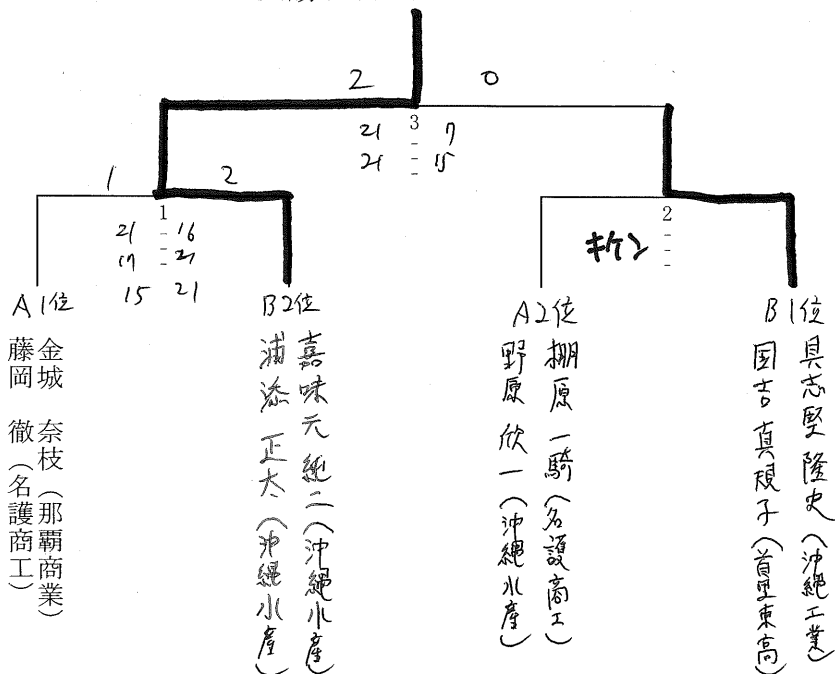 2 0
3
21 - 7
21 - 15
-
1 2
1
21 - 16
17 - 21
15 - 21
2
-
キケン -
-
A1位
金城 奈枝（那覇商業）
藤岡 徹（名護商工）
B2位
嘉味元 純二（沖縄水産）
浦添 正太（沖縄水産）
A2位
棚原 一騎（名護商工）
野原 欣一（沖縄水産）
B1位
具志堅 隆史（沖縄工業）
国吉 真規子（首里東高）